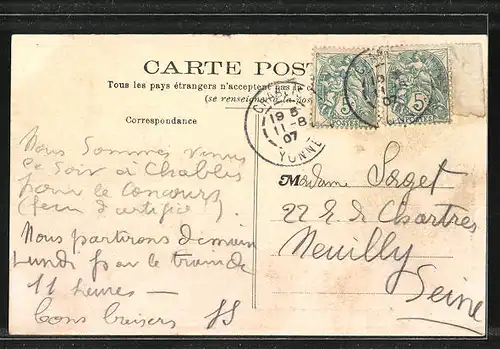 CARTE POST
Tous les pays étrangers n'acceptent pas la c
(se renseigner à la pos
Correspondance
CHABLIS
19 5
11-8
07
YONNE
5c
5c
Nous sommes venus
ce soir à Chablis
pour le concours
(feu d'artifice).
Nous partirons demain
Lundi par le train de
11 heures –
bons baisers JS
Madame Saget
22 R. de Chartres
Neuilly
Seine